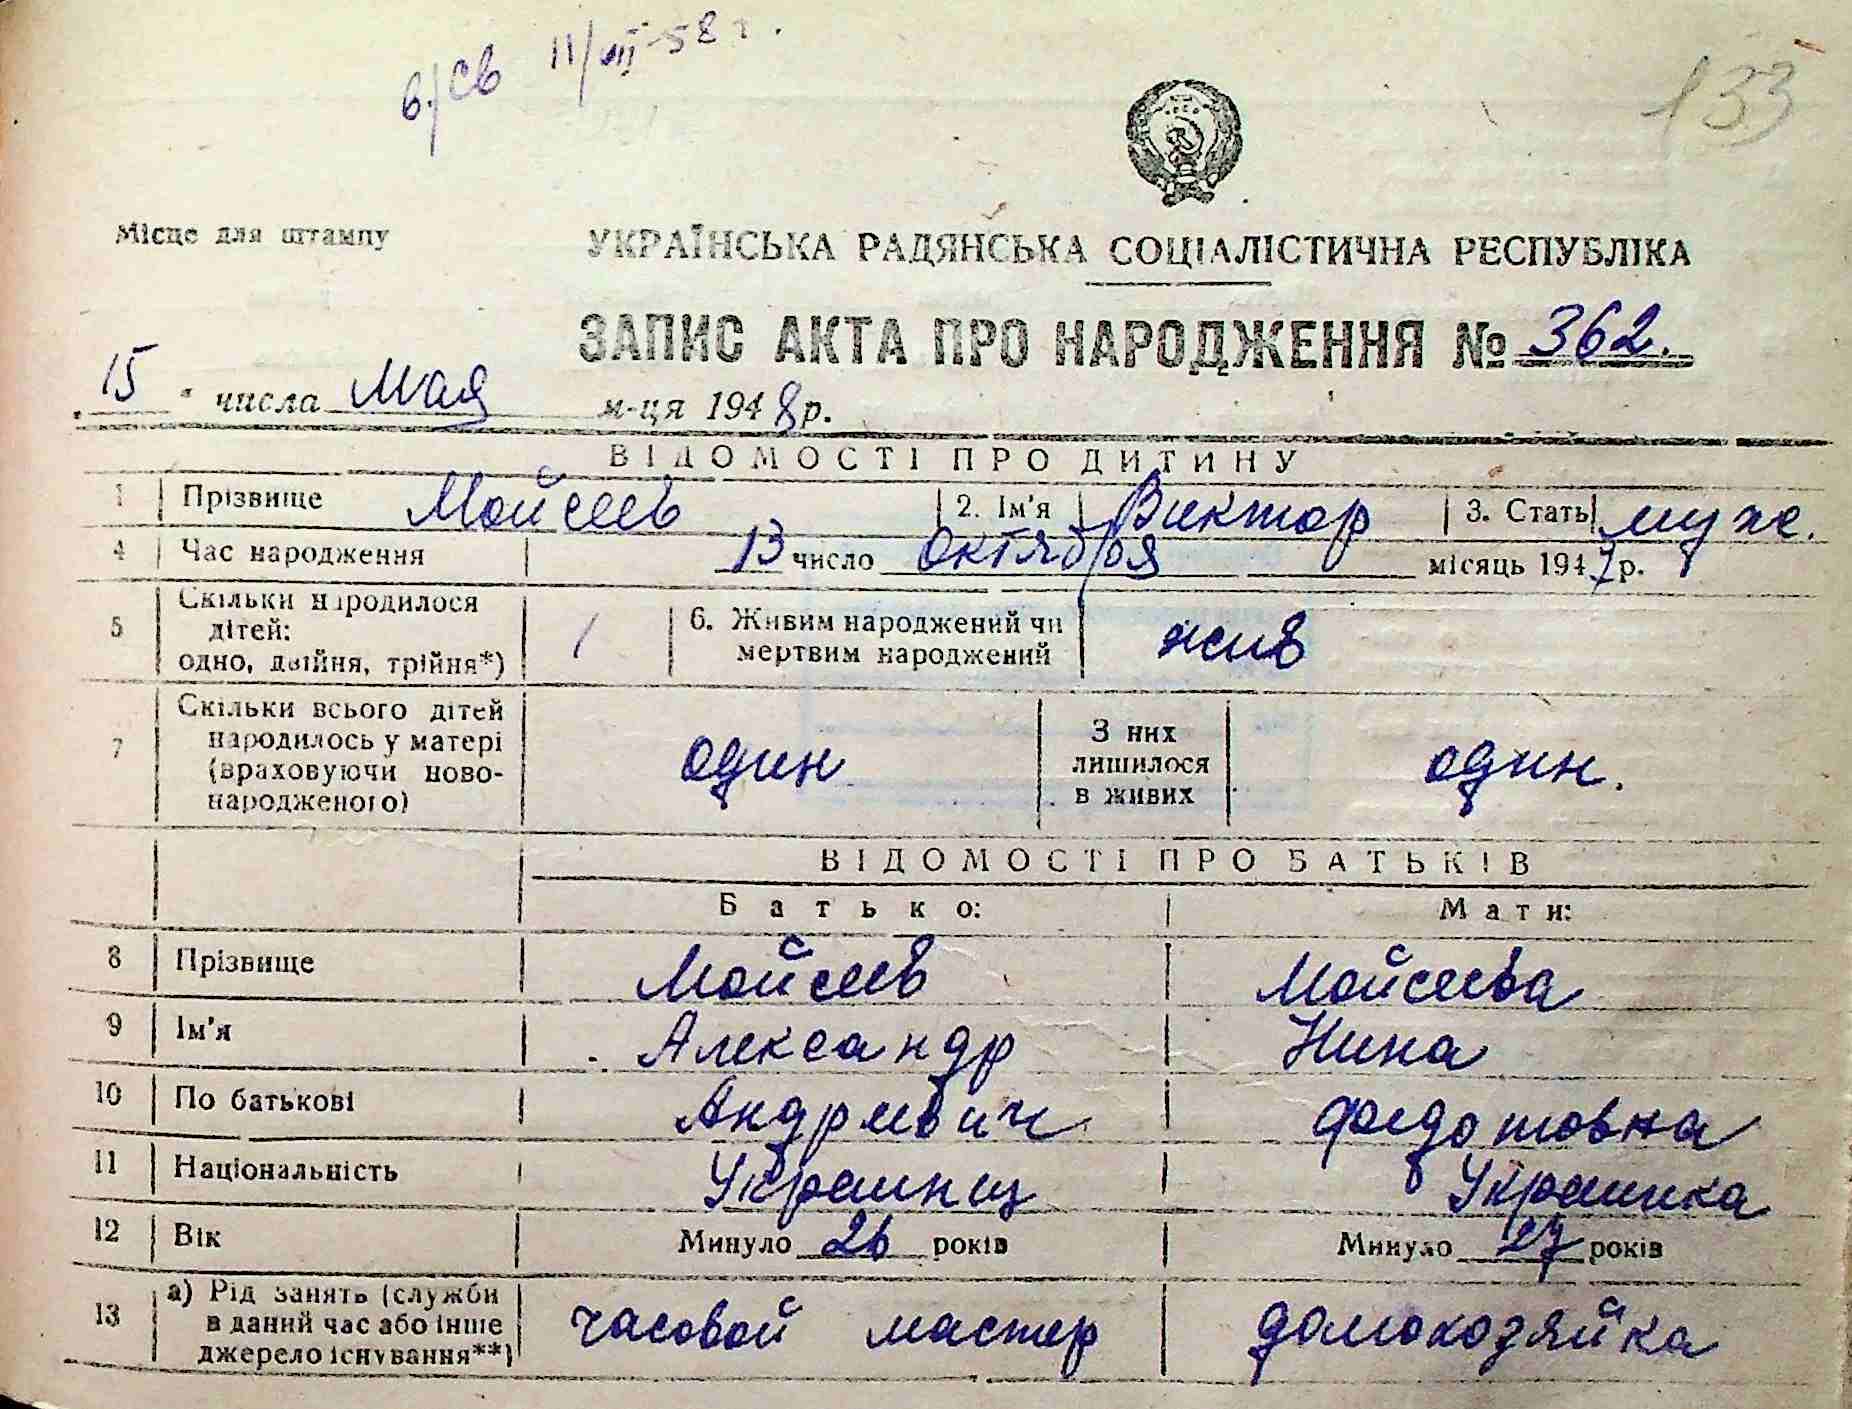 в/св 11/VII-58 г.
133
Місце для штампу
УКРАЇНСЬКА РАДЯНСЬКА СОЦІАЛІСТИЧНА РЕСПУБЛІКА
ЗАПИС АКТА ПРО НАРОДЖЕННЯ № 362.
„15" числа Мая м-ця 1948 р.
ВІДОМОСТІ ПРО ДИТИНУ
1 Прізвище Мойсеев 2. Ім'я Виктор 3. Стать муж.
4 Час народження 13 число октября місяць 1947 р.
5 Скільки народилося
дітей:
одно, двійня, трійня*)
1
6. Живим народжений чи
мертвим народжений
жив
7 Скільки всього дітей
народилось у матері
(враховуючи ново-
народженого)
один
З них
лишилося
в живих
один.
ВІДОМОСТІ ПРО БАТЬКІВ
Батько: Мати:
8 Прізвище Мойсеев Мойсеева
9 Ім'я Александр Нина
10 По батькові Андреевич Федотовна
11 Національність Украинец Украинка
12 Вік Минуло 26 років Минуло 27 років
13 а) Рід занять (служби
в даний час або інше
джерело існування**)
часовой мастер домохозяйка